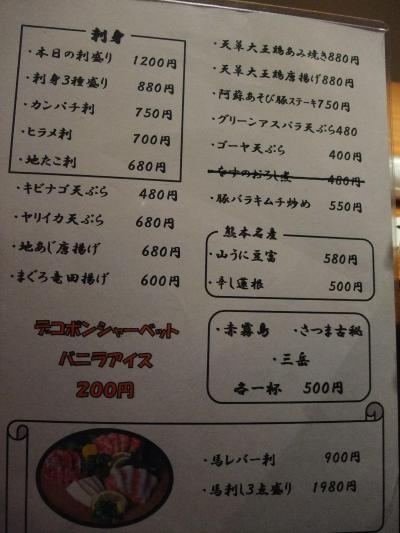 刺身
・本日の刺盛り 1200円
・刺身3種盛り 880円
・カンパチ刺 750円
・ヒラメ刺 700円
・地たこ刺 680円
・キビナゴ天ぷら 480円
・ヤリイカ天ぷら 680円
・地あじ唐揚げ 680円
・まぐろ竜田揚げ 600円
デコポンシャーベット
バニラアイス
200円
・天草大王鶏あみ焼き880円
・天草大王鶏唐揚げ880円
・阿蘇あそび豚ステーキ750円
・グリーンアスパラ天ぷら480
・ゴーヤ天ぷら 400円
・なすのおろし煮 480円
・豚バラキムチ炒め 550円
熊本名産
・山うに豆富 580円
・辛し蓮根 500円
・赤霧島 ・さつま古秘
・三岳
各一杯 500円
・馬レバー刺 900円
・馬刺し3点盛り 1980円